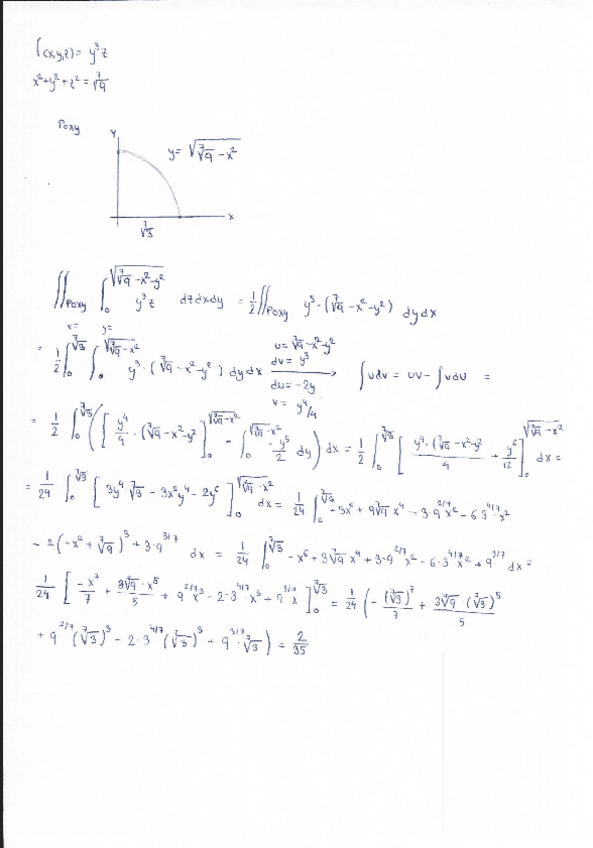 f(x,y,z) = y³z
x²+y²+z² = ⁷√9
Poxy
y
y = √(⁷√9 - x²)
x
⁷√3
∬Poxy ∫₀^√(⁷√9 - x² - y²) y³z dz dx dy = 1/2 ∬Poxy y³ · (⁷√9 - x² - y²) dy dx
x= y=
= 1/2 ∫₀^⁷√3 ∫₀^√(⁷√9 - x²) y³ · (⁷√9 - x² - y²) dy dx → ∫u dv = uv - ∫v du =
u = ⁷√9 - x² - y²
dv = y³
du = -2y
v = y⁴/4
= 1/2 ∫₀^⁷√3 ([y⁴/4 · (⁷√9 - x² - y²)]₀^√(⁷√9 - x²) - ∫₀^√(⁷√9 - x²) - y⁵/2 dy) dx = 1/2 ∫₀^⁷√3 [y⁴ · (⁷√9 - x² - y²)/4 + y⁶/12]₀^√(⁷√9 - x²) dx =
= 1/24 ∫₀^⁷√3 [3y⁴ ⁷√9 - 3x²y⁴ - 2y⁶]₀^√(⁷√9 - x²) dx = 1/24 ∫₀^⁷√3 -3x⁶ + 9⁷√9 x⁴ - 3·9^2/7 x² - 6·3^4/7 x²
- 2(-x² + ⁷√9)³ + 3·9^3/7 dx = 1/24 ∫₀^⁷√3 -x⁶ + 3⁷√9 x⁴ + 3·9^2/7 x² - 6·3^4/7 x² + 9^3/7 dx =
1/24 [-x⁷/7 + 3⁷√9 · x⁵/5 + 9^2/7 x³ - 2·3^4/7 x³ + 9^3/7 x]₀^⁷√3 = 1/24 (-(⁷√3)⁷/7 + 3⁷√9 · (⁷√3)⁵/5
+ 9^2/7 (⁷√3)³ - 2·3^4/7 (⁷√3)³ + 9^3/7 · ⁷√3) = 2/35